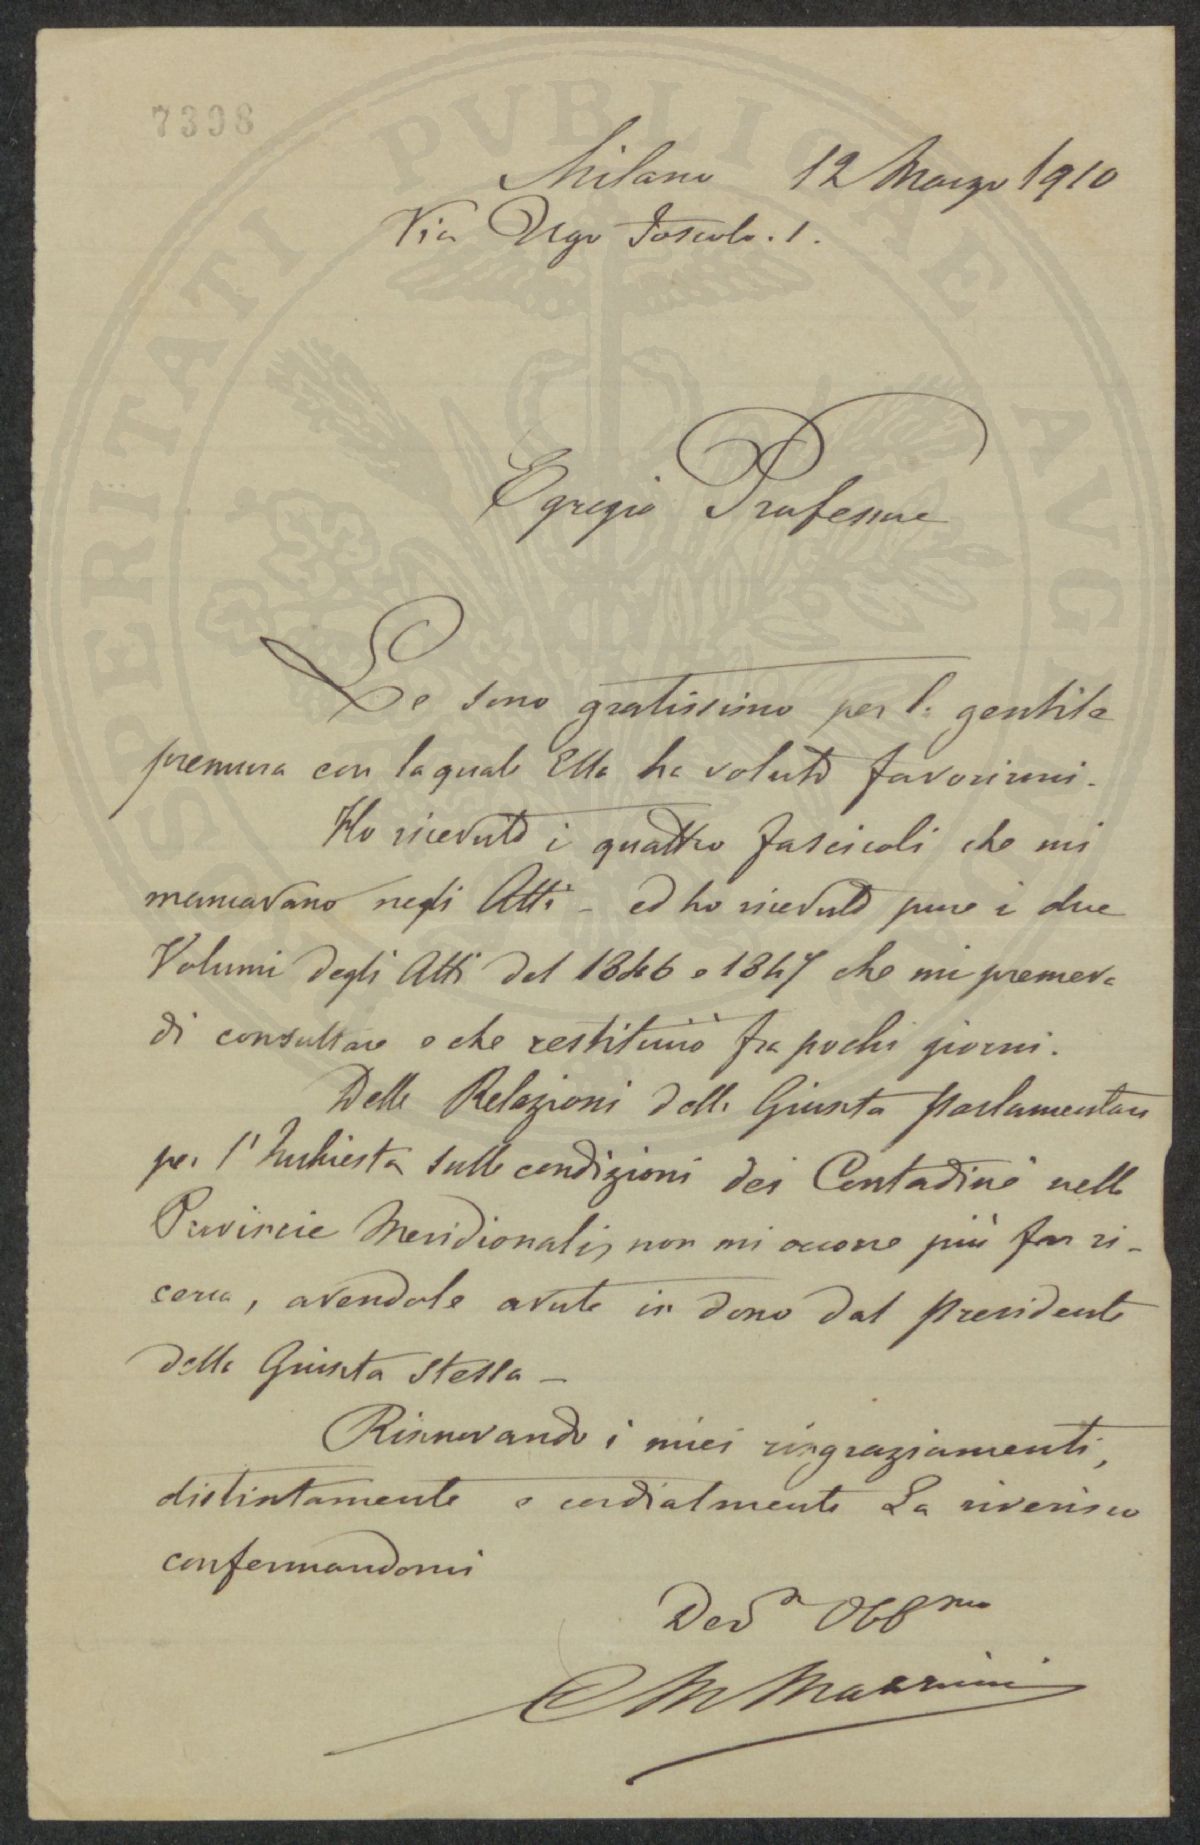 7398
Milano 12 Marzo 1910
Via Ugo Foscolo. 1.
Egregio Professore
Le sono gratissimo per la gentile
premura con la quale Ella ha voluto favorirmi.
Ho ricevuto i quattro fascicoli che mi
mancavano negli Atti - ed ho ricevuto pure i due
Volumi degli Atti del 1846 e 1847 che mi premeva
di consultare e che restituirò fra pochi giorni.
Delle Relazioni della Giunta parlamentare
per l'Inchiesta sulle condizioni dei Contadini nelle
Provincie Meridionali, non mi occorre più far ri-
cerca, avendole avute in dono dal presidente
della Giunta stessa -
Rinnovando i miei ringraziamenti,
distintamente e cordialmente La riverisco
confermandomi
Dev° Obb^mo